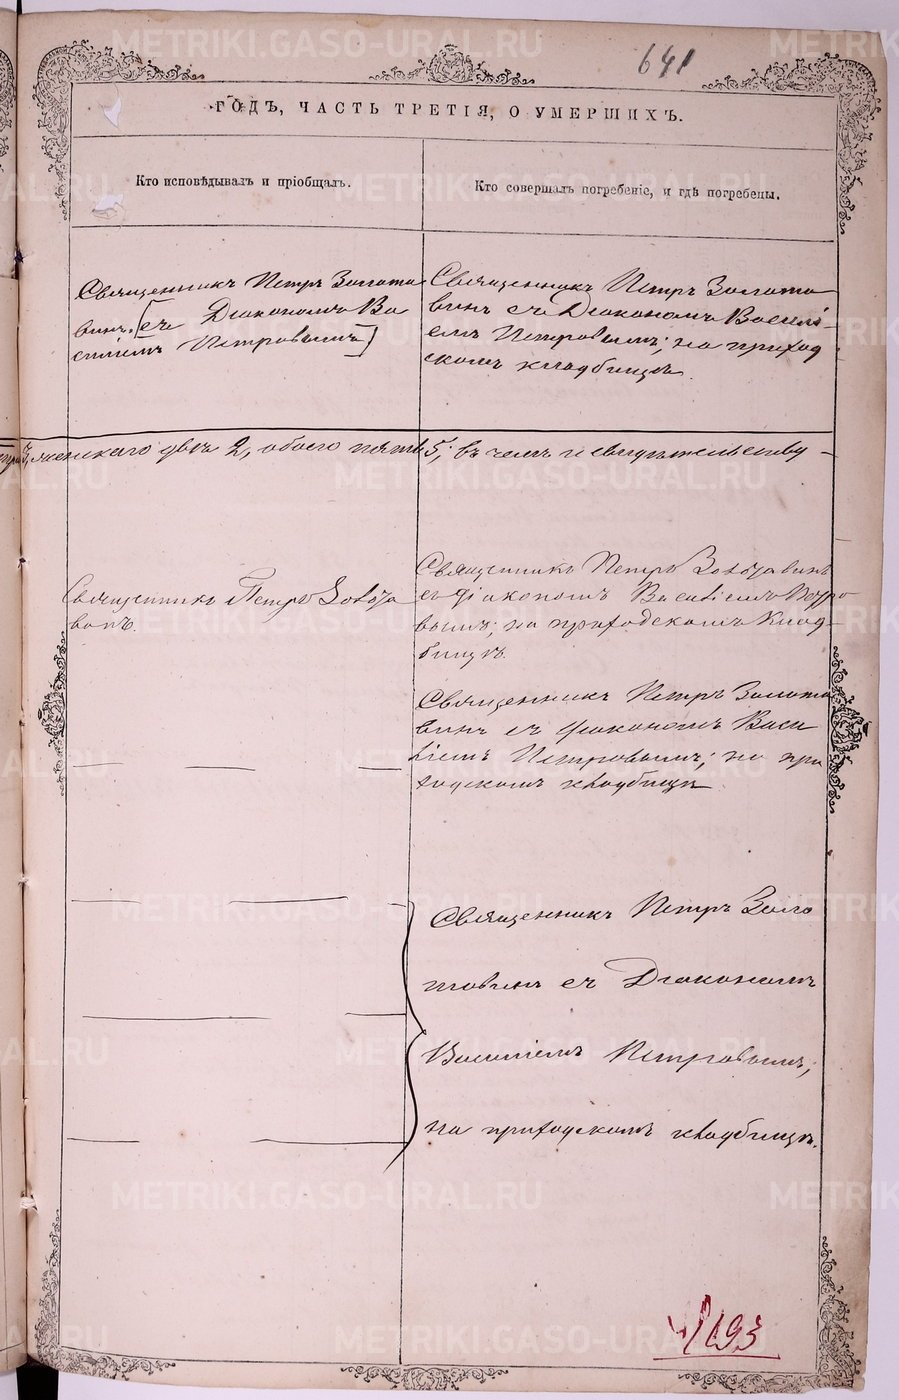 641
ГОДЪ, ЧАСТЬ ТРЕТІЯ, О УМЕРШИХЪ.
Кто исповѣдывалъ и пріобщалъ.
Кто совершалъ погребеніе, и гдѣ погребены.
Священникъ Петръ Золото
винъ. [съ Діакономъ Ва
силіемъ Петровымъ]
Священникъ Петръ Золото
винъ съ Діакономъ Василі-
емъ Петровымъ; на приход
скомъ кладбищѣ.
женскаго двѣ 2, обоего пять 5; въ чемъ и свидѣтельству-
Священникъ Петръ Золото
винъ.
Священникъ Петръ Золотавинъ
съ діакономъ Василіемъ Петро
вымъ; на приходскомъ Клад-
бищѣ.
Священникъ Петръ Золото
винъ съ діакономъ Васи
ліемъ Петровымъ; на при
ходскомъ кладбищѣ
Священникъ Петръ Золо
товинъ съ Діакономъ
Василіемъ Петровымъ;
на приходскомъ кладбищѣ.
METRIKI.GASO-URAL.RU